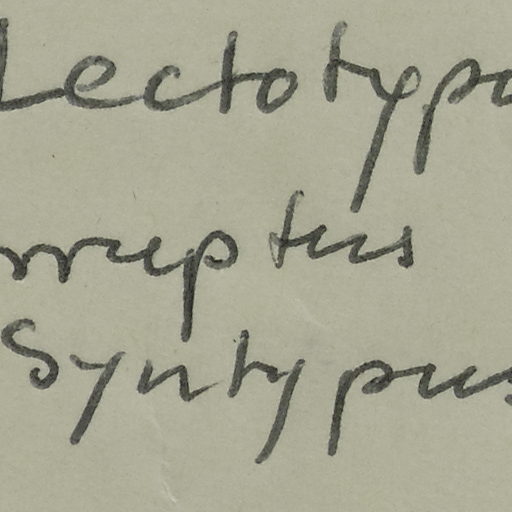 Lectotypo
rruptus
Syntypus